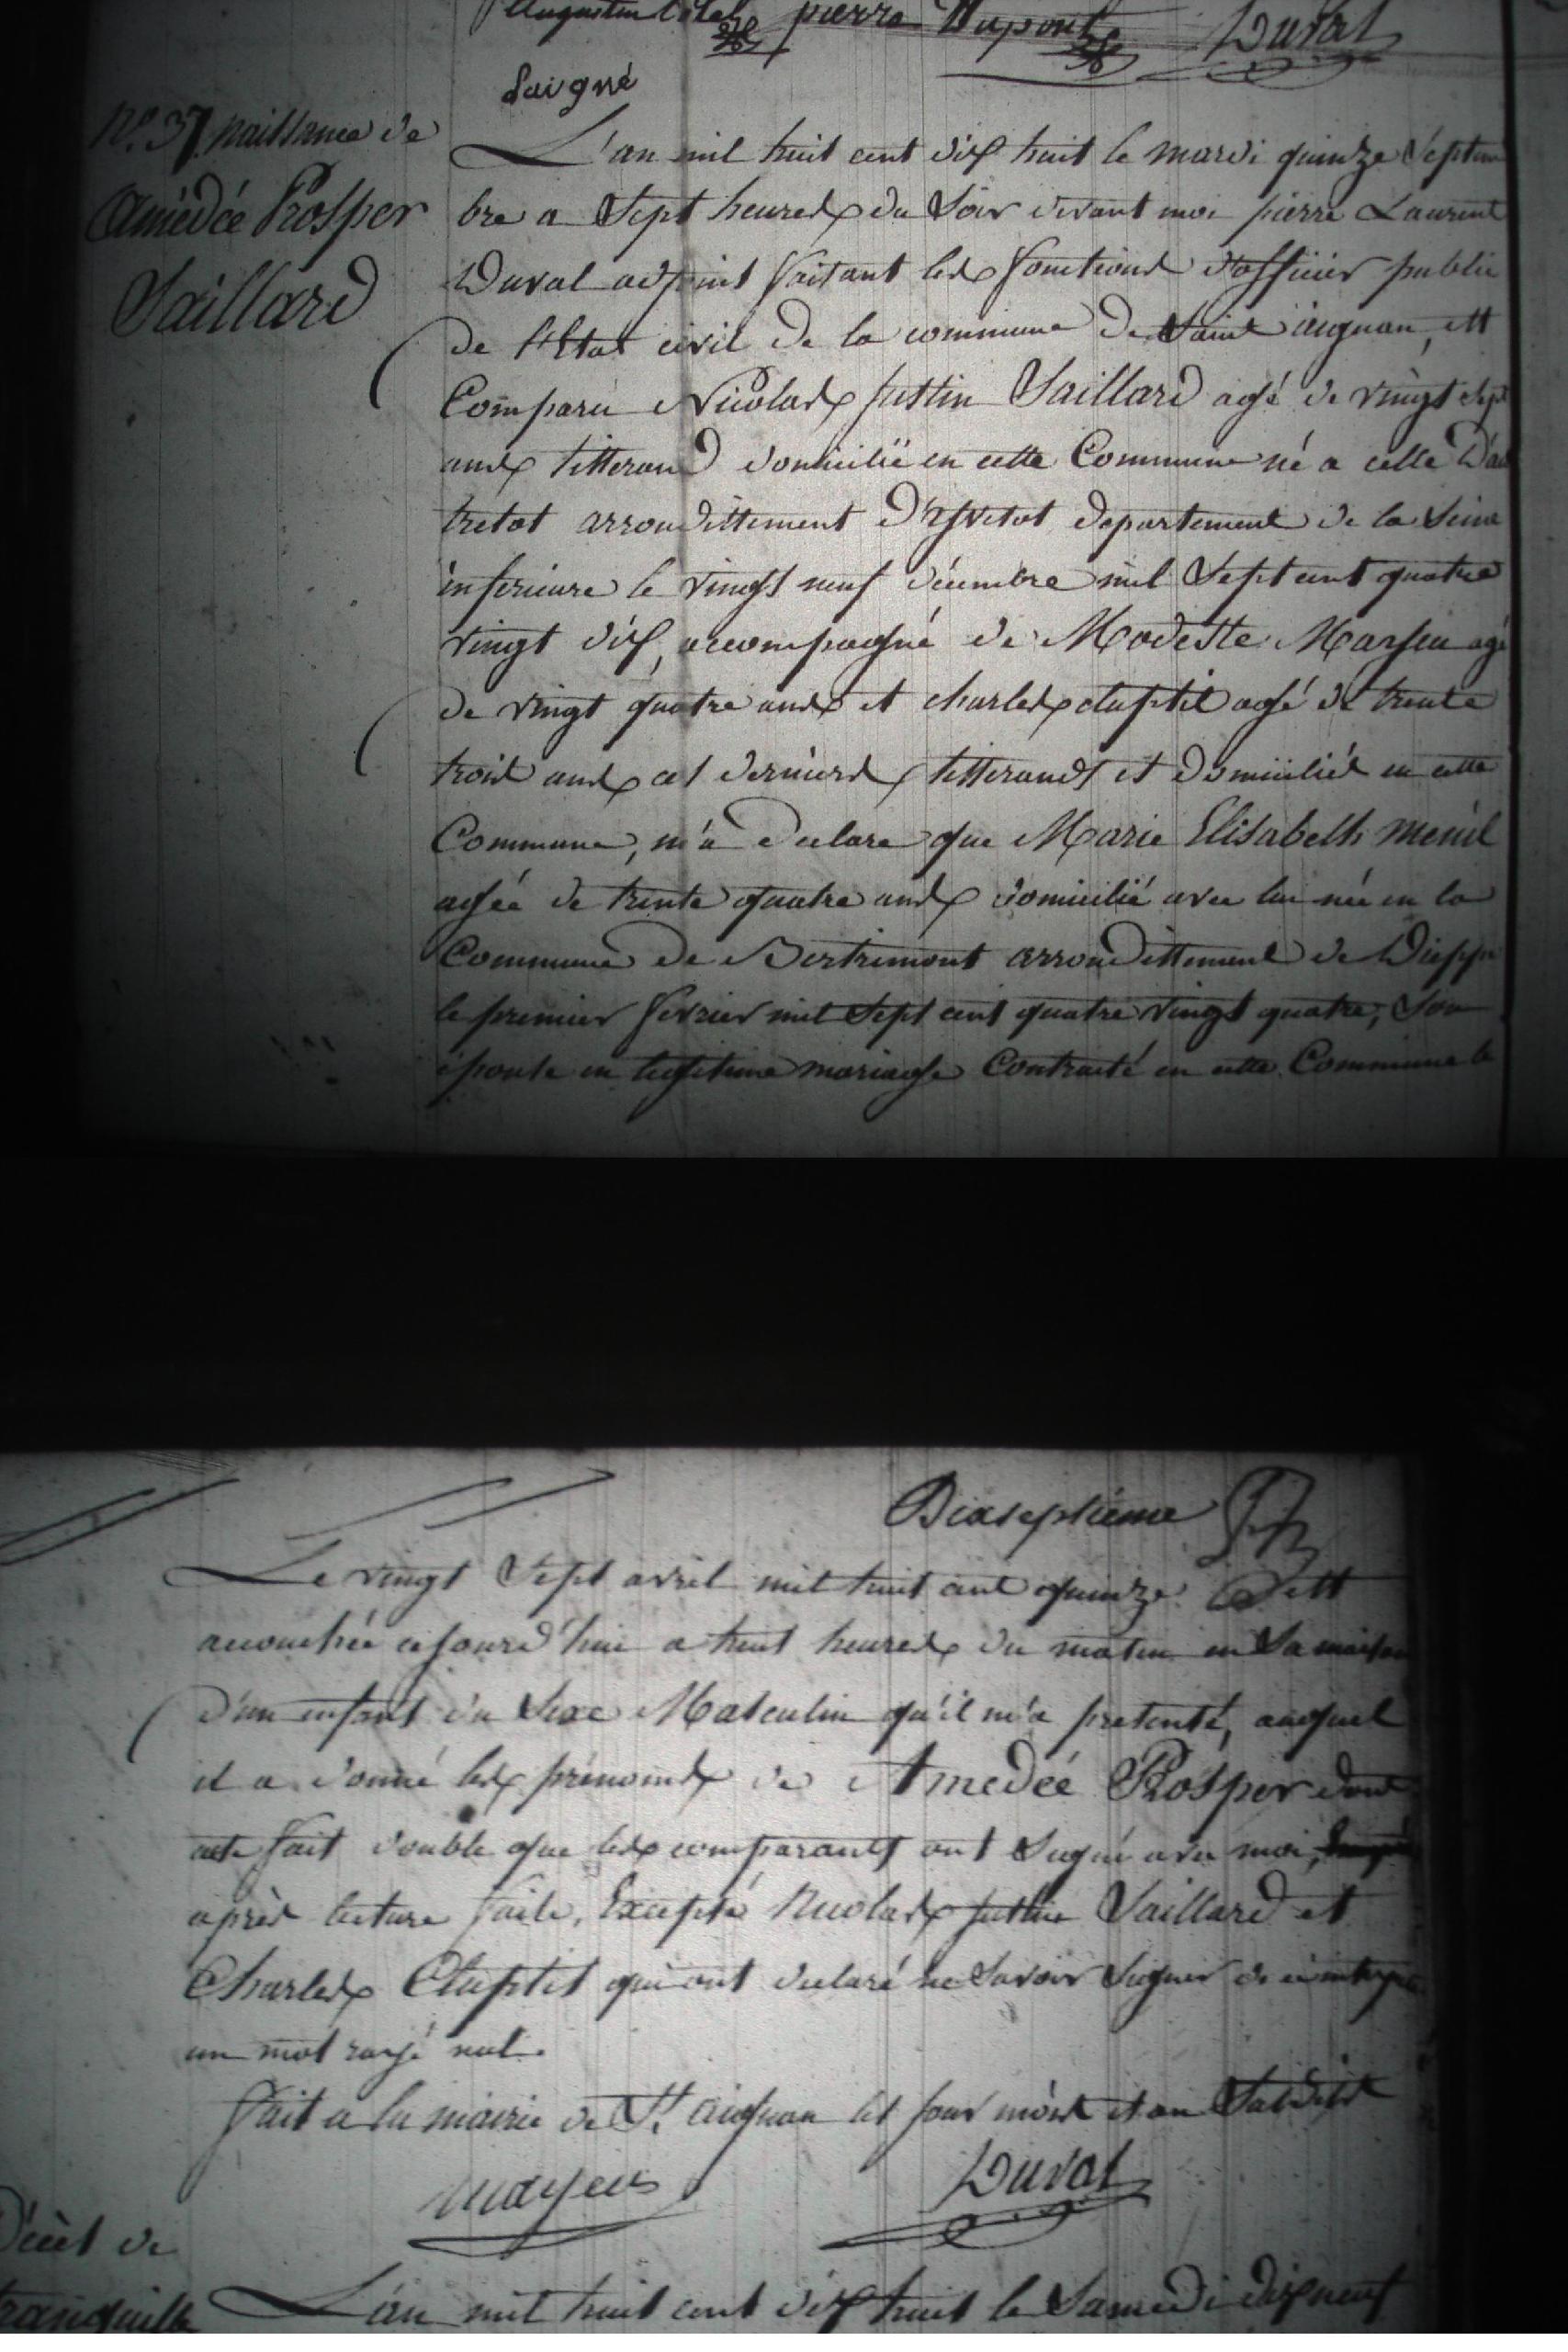 pierre Dupont Duval
Saigné
N.º 37 naissance de
Amédée Prosper
Saillard
L'an mil huit cent dix huit le mardi quinze Septem
bre a Sept heures du Soir devant moi pierre Laurent
Duval adjoint faisant les fonctions d'officier public
de l'Etat civil de la commune de Saint aignan, est
Comparu Nicolas Justin Saillard agé de vingt sept
ans tisserand domicilié en cette Commune né a celle D'au
tretot arrondissement D'yvetot departement de la Seine
inferieure le vingt neuf décembre mil Sept cent quatre
vingt dix, accompagné de Modeste agé
de vingt quatre ans et charles cluptil agé de trente
trois ans ces derniers tisserands et domiciliés en cette
Commune, m'a declare que Marie Elisabeth menil
agée de trente quatre ans domicilié avec lui née en la
Commune de Bertrimont arrondissement de Dieppe
le premier fevrier mil Sept cent quatre vingt quatre, Son
epouse en legitime mariage Contracté en cette Commune le
Dixseptieme
Le vingt Sept avril mil huit cent quinze Est
accouchée cejourd'hui a huit heures du matin en Sa maison
d'un enfant du Sexe Masculin qu'il m'a presenté, auquel
il a donné les prénoms de Amedéé Prosper dont
acte fait double que les comparants ont Signé avec moi,
après lecture faite, Excepté Nicolas Justin Saillard et
Charles Cluptil qui ont declaré ne Savoir Signer de ce interpe
un mot rayé nul.
Fait a la mairie de St. aignan les jour mois et an Susdits
Duval
Décès de
L'an mil huit cent dix huit le Samedi dixneuf